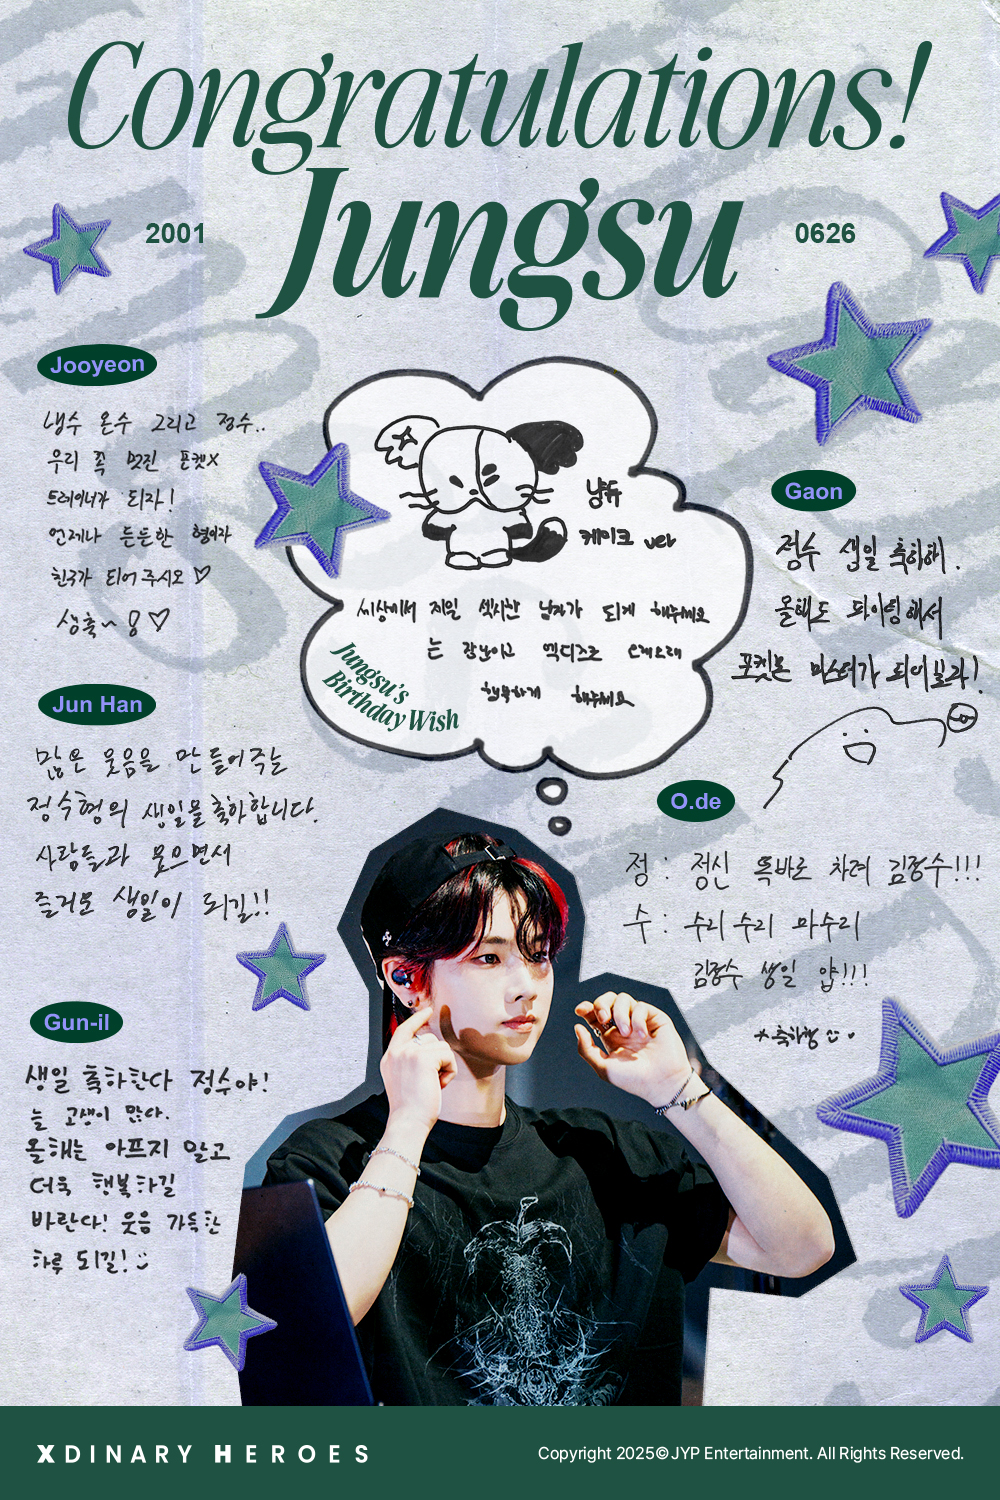 Congratulations!
Jungsu
2001
0626
Jooyeon
냉수 온수 그리고 정수..
우리 쪽 멋진 포켓X
트레이너가 되자!
언제나 든든한 형이자
친구가 되어주시오 ♡
생축~ 용 ♡
냥듀
케이크 ver
세상에서 제일 섹시한 남자가 되게 해주세요
는 장난이고 엑디즈로 오래오래
행복하게 해주세요
Jungsu's
Birthday Wish
Gaon
정수 생일 축하해.
올해도 파이팅해서
포켓몬 마스터가 되어보라!
Jun Han
많은 웃음을 만들어주는
정수형의 생일을 축하합니다.
사람들과 웃으면서
즐거운 생일이 되길!!
O.de
정 : 정신 똑바로 차려 김정수!!!
수 : 수리수리 마수리
김정수 생일 얍!!!
축하행
Gun-il
생일 축하한다 정수야!
늘 고생이 많다.
올해는 아프지 말고
더욱 행복하길
바란다! 웃음 가득한
하루 되길!
XDINARY HEROES
Copyright 2025© JYP Entertainment. All Rights Reserved.